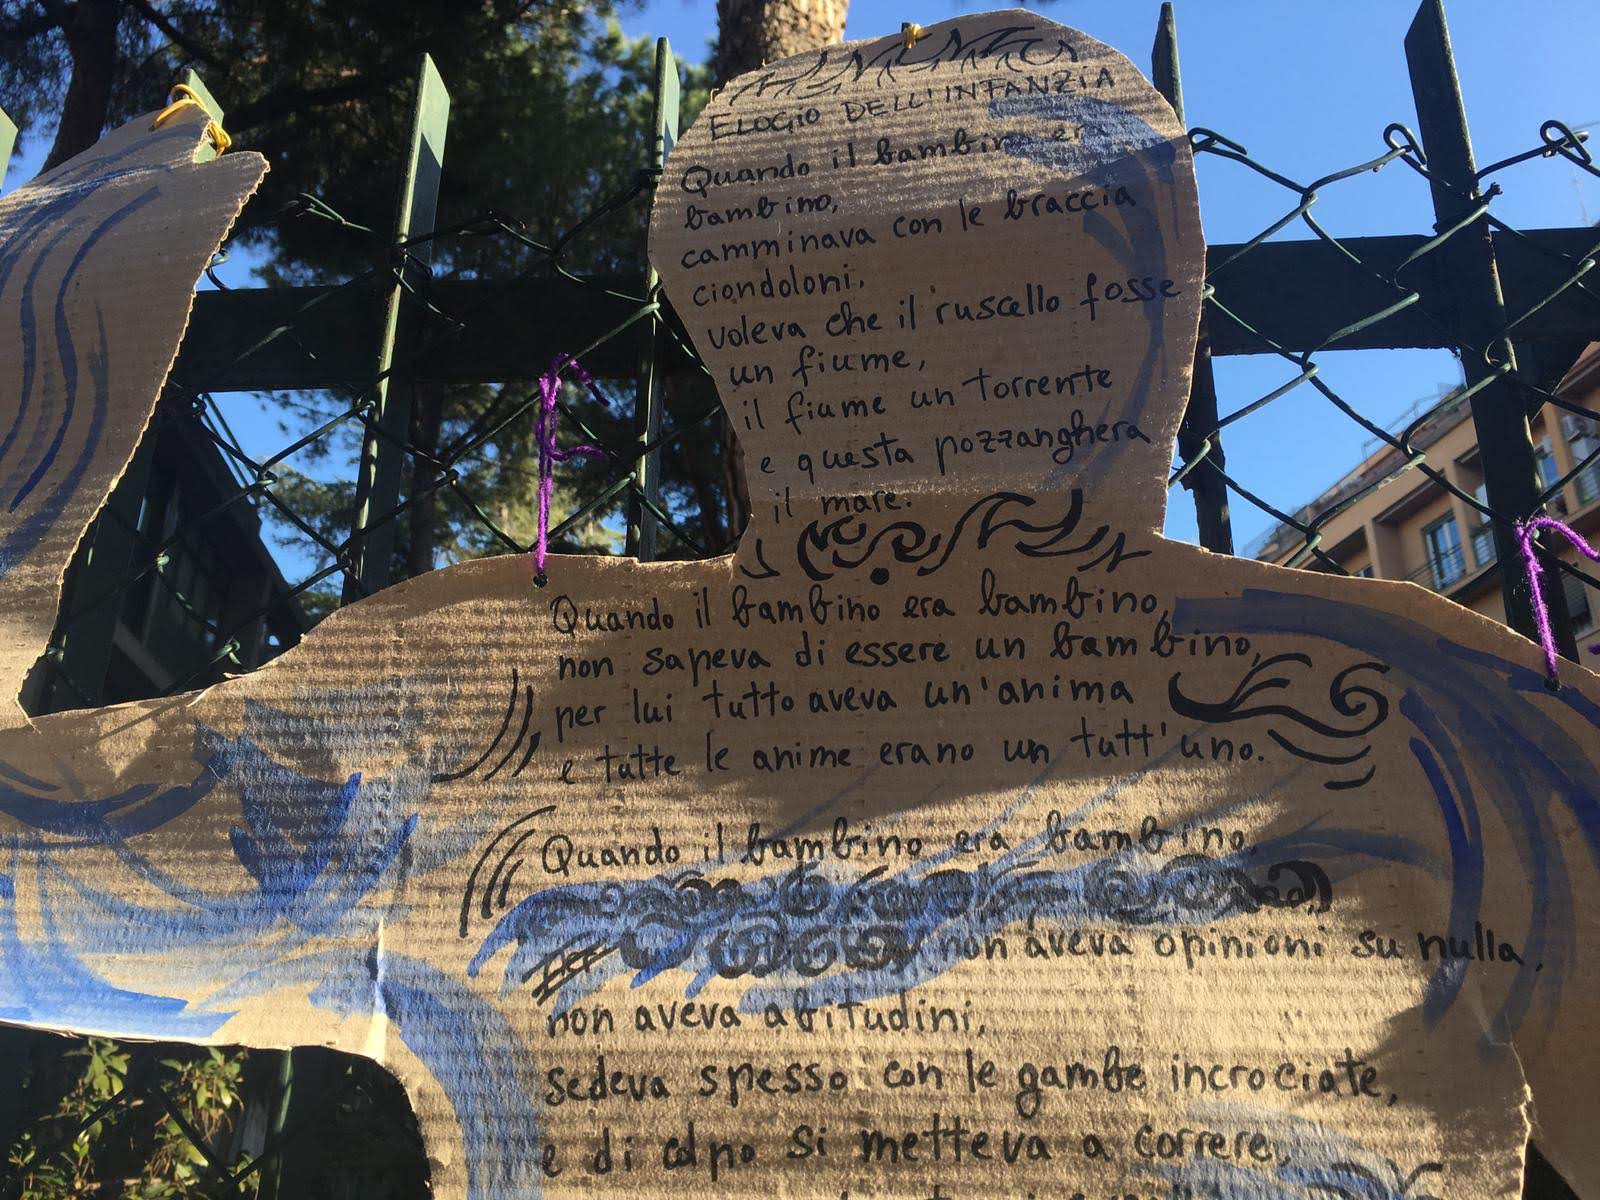 ELOGIO DELL'INFANZIA
Quando il bambino er
bambino,
camminava con le braccia
ciondoloni,
voleva che il ruscello fosse
un fiume,
il fiume un torrente
e questa pozzanghera
il mare.
Quando il bambino era bambino,
non sapeva di essere un bambino,
per lui tutto aveva un'anima
e tutte le anime erano un tutt'uno.
Quando il bambino era bambino,
non aveva opinioni su nulla,
non aveva abitudini,
sedeva spesso con le gambe incrociate,
e di colpo si metteva a correre,